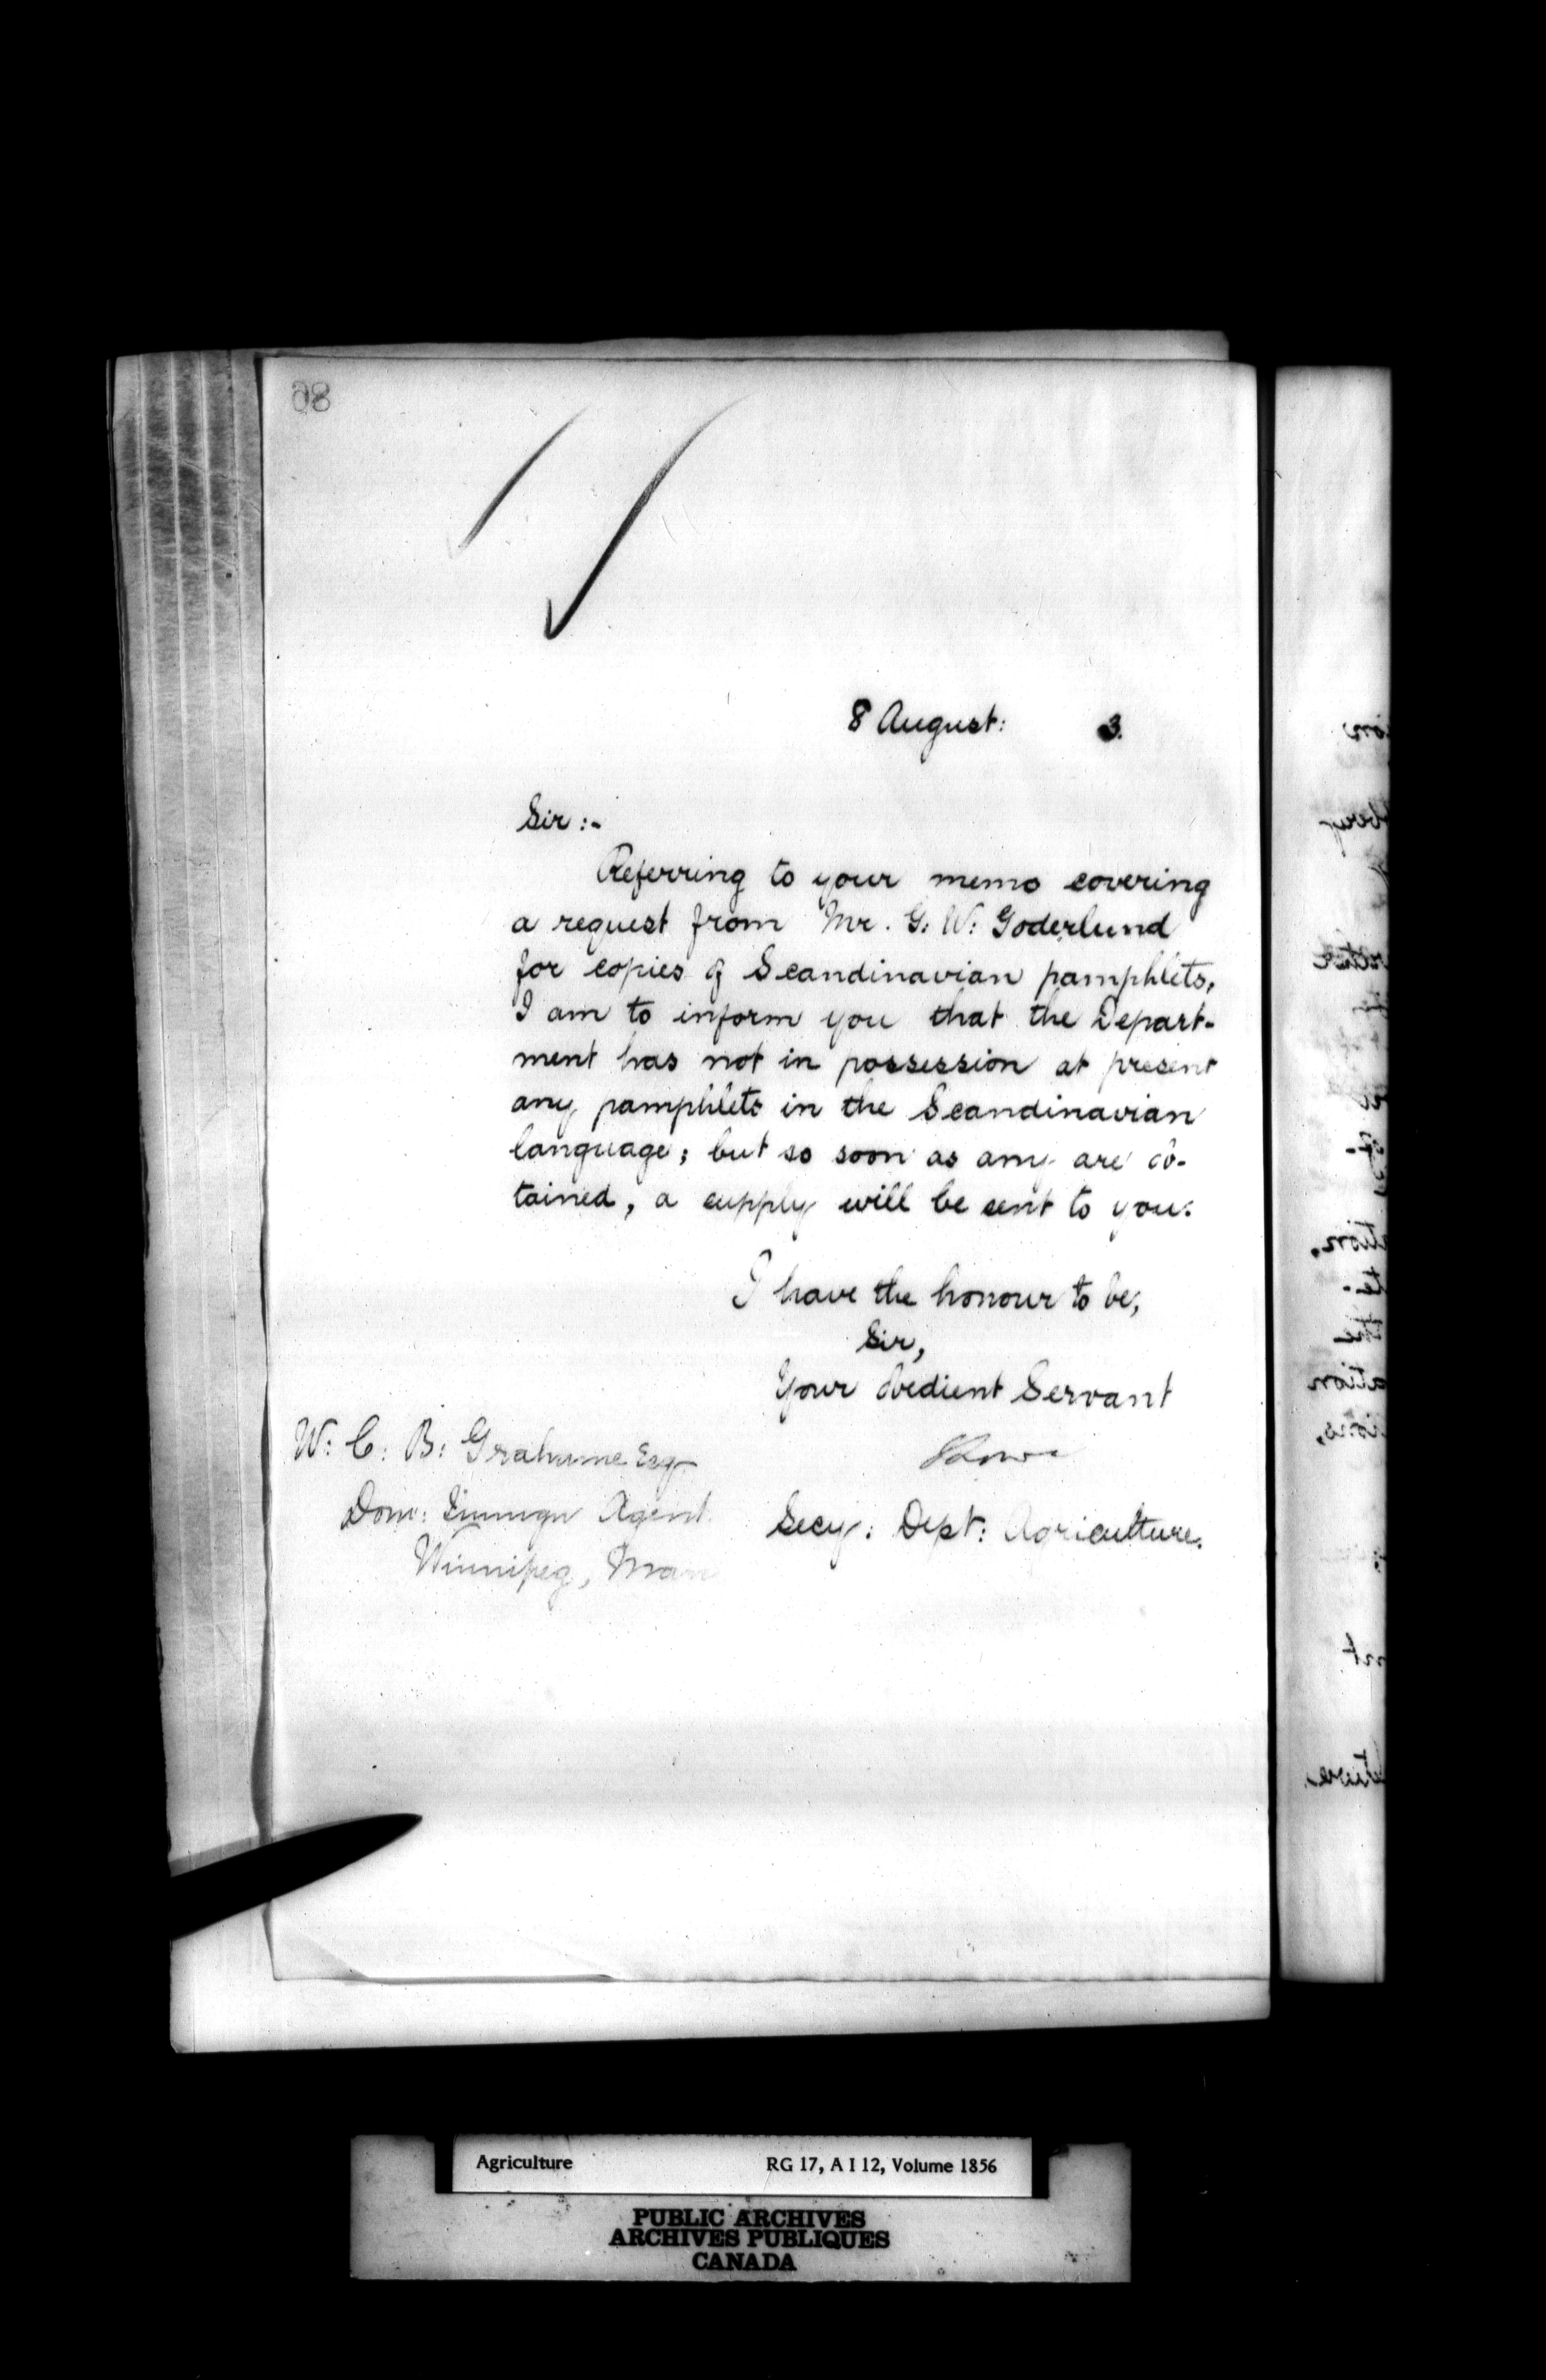 80
8 August: 3.
Sir:-
Referring to your memo covering
a request from Mr. G. W: Goderlund
for copies of Scandinavian pamphlets,
I am to inform you that the Depart-
ment has not in possession at present
any pamphlets in the Scandinavian
language; but so soon as any are ob-
tained, a supply will be sent to you:
I have the honour to be,
Sir,
Your obedient Servant
W: C: B: Grahame Esq
Dom: Immign Agent
Winnipeg, Man
Secy: Dept: Agriculture.
Agriculture RG 17, A I 12, Volume 1856
PUBLIC ARCHIVES
ARCHIVES PUBLIQUES
CANADA